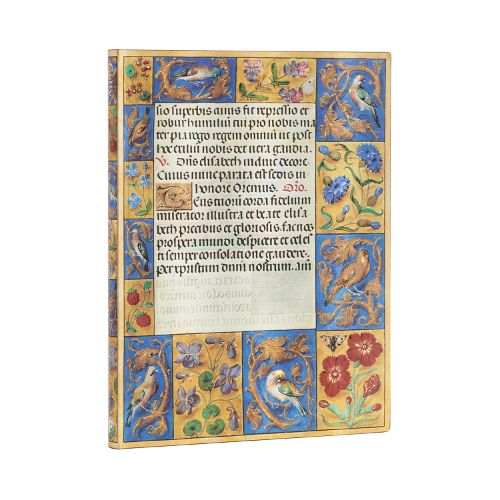 sio superbis fit repressio et
robur humiliū tu pro nobis ma
ter pia rogo regem omniū ut post
hoc exiliū nobis det vera gaudia.
V. Dñs elisabeth induit decore
Cuius nunc parata est sedis in
honore Oremus. Orõ.
Eus tuorū corda fidelium
miserator illustra et beate elisa
beth precibus et gloriosis fac nos
prospera mundi despicere et celes
ti semper consolatione gaudere.
Per xpistum dnm nostrum. am